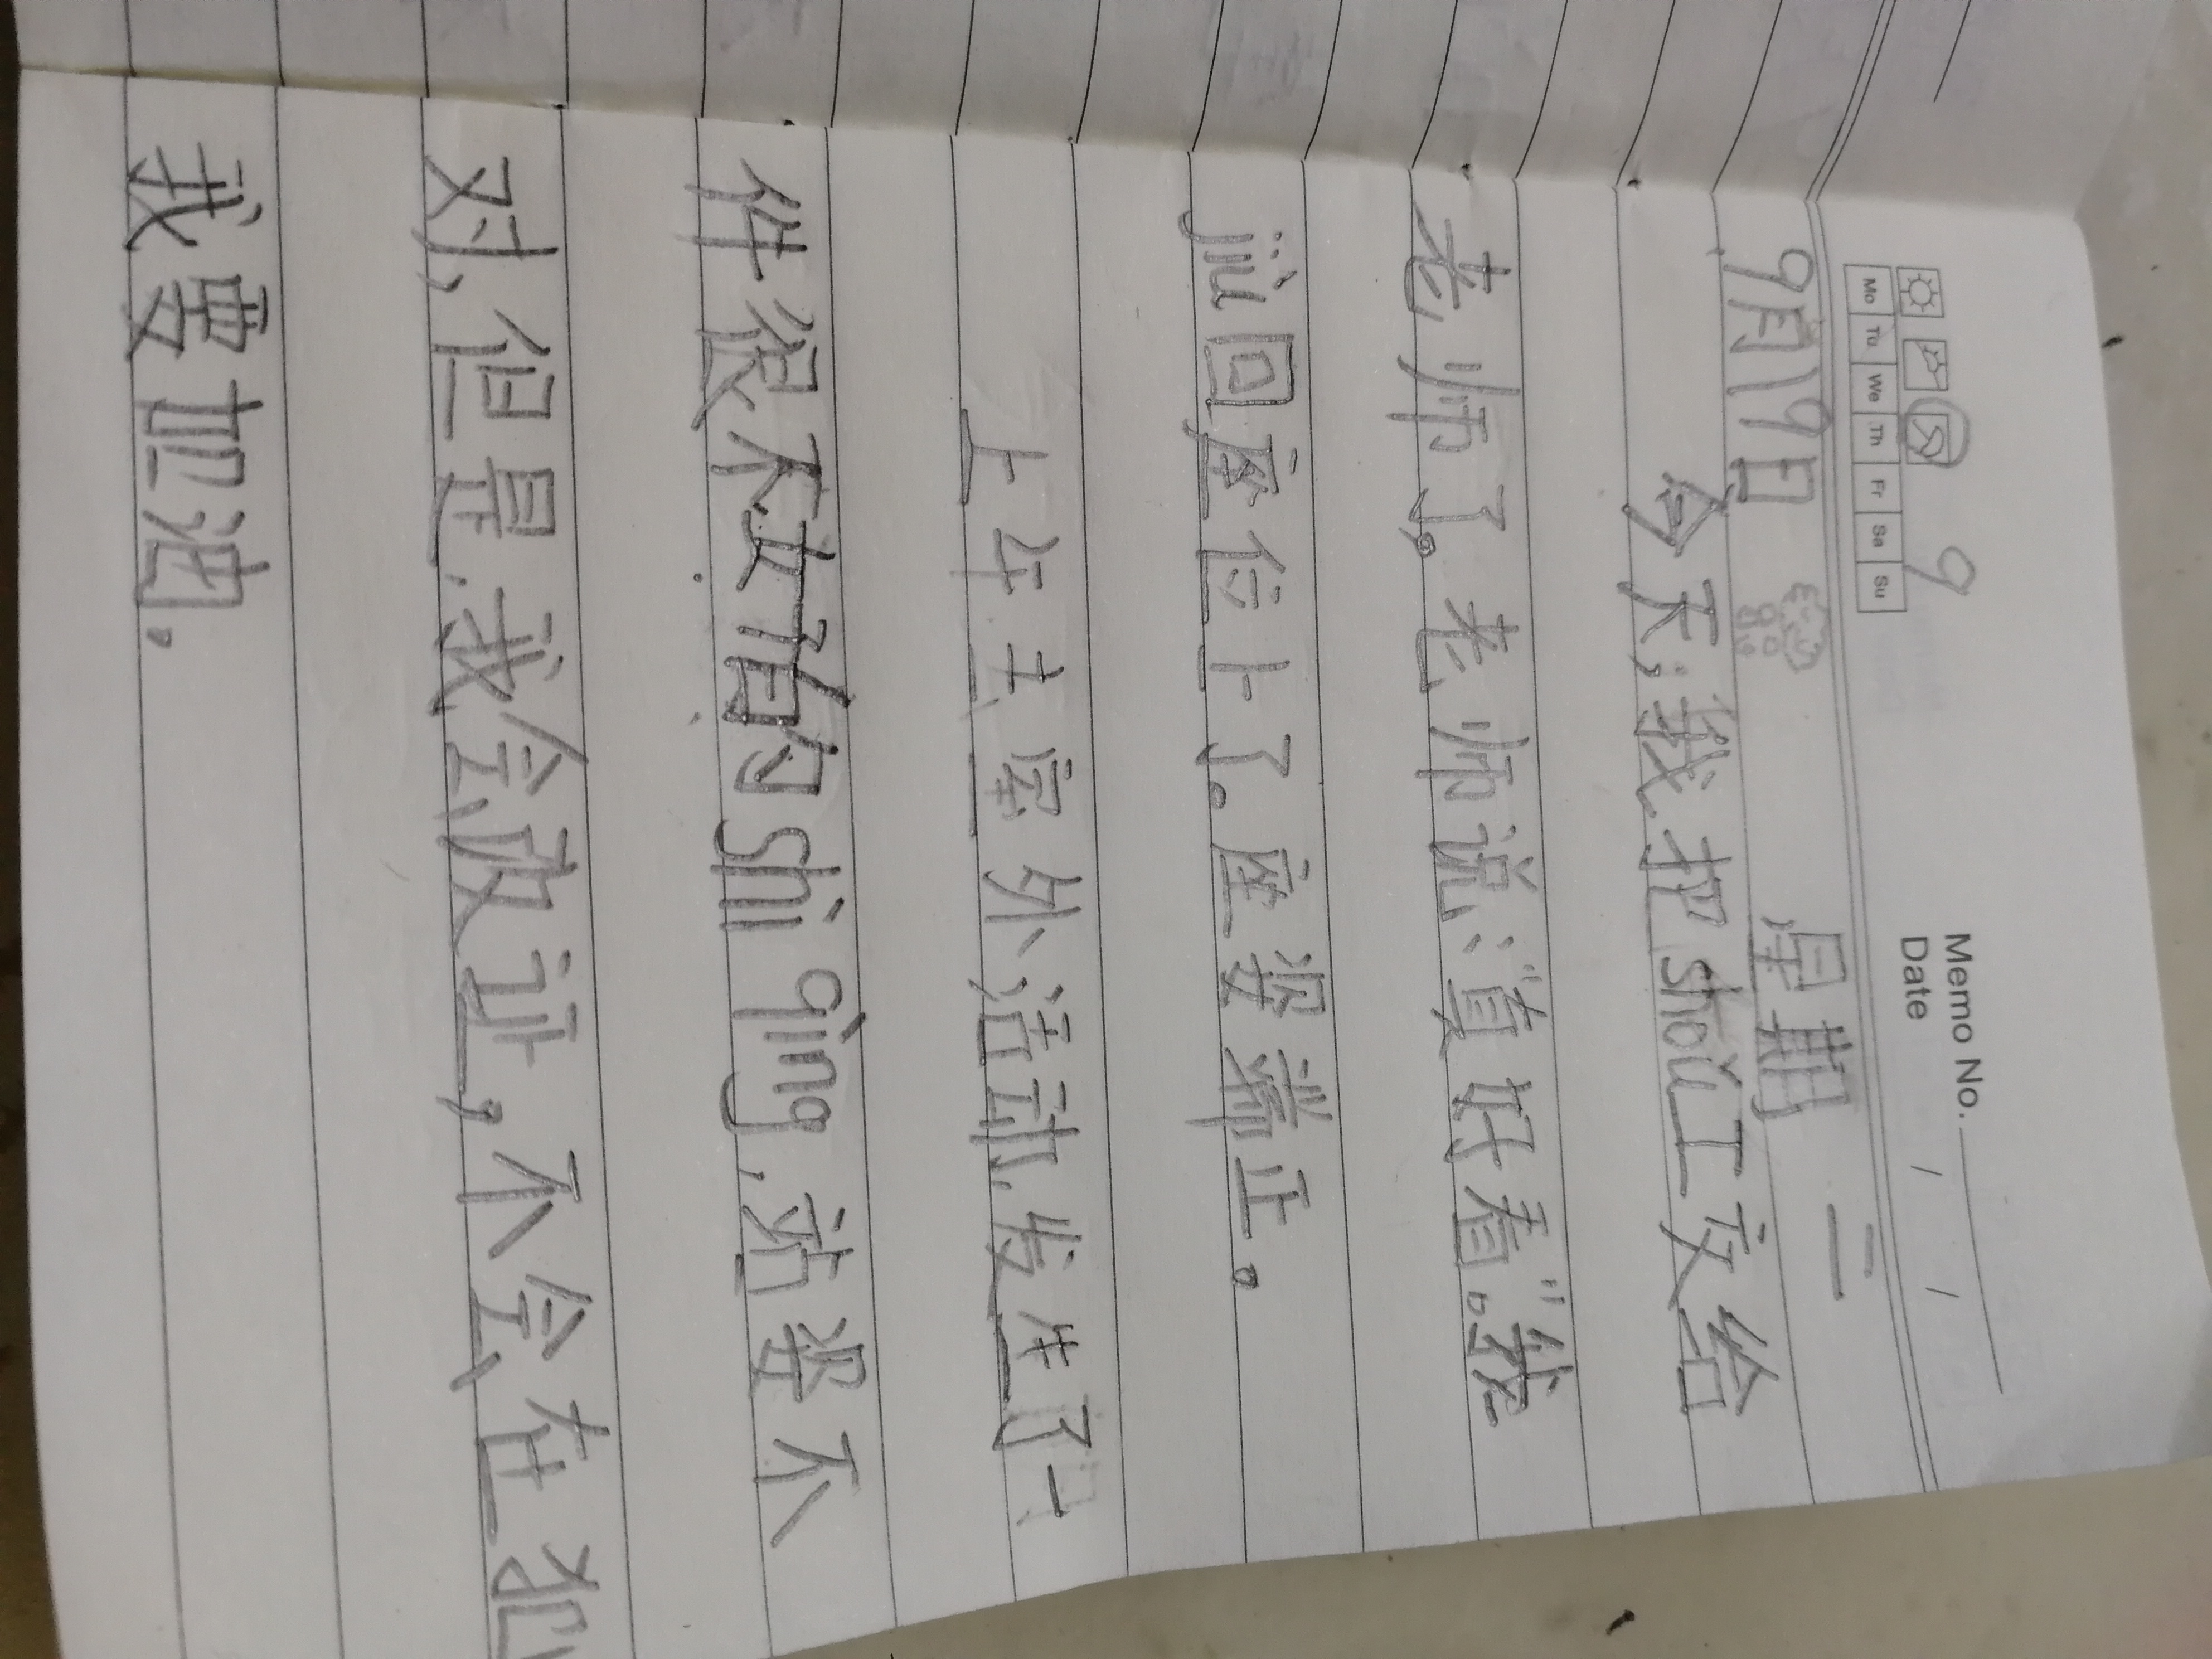 Memo No.
Date / /
Mo Tu We Th Fr Sa Su
9
9月19日 星期二
今天,我把shǒu工交给
老师了。老师说:"真好看。"我
jiù回座位上了。座姿端正。
上午去室外活动,发生了一
件很不好的shì qing,站姿不
对,但是,我会改正,不会在犯
我要加油.